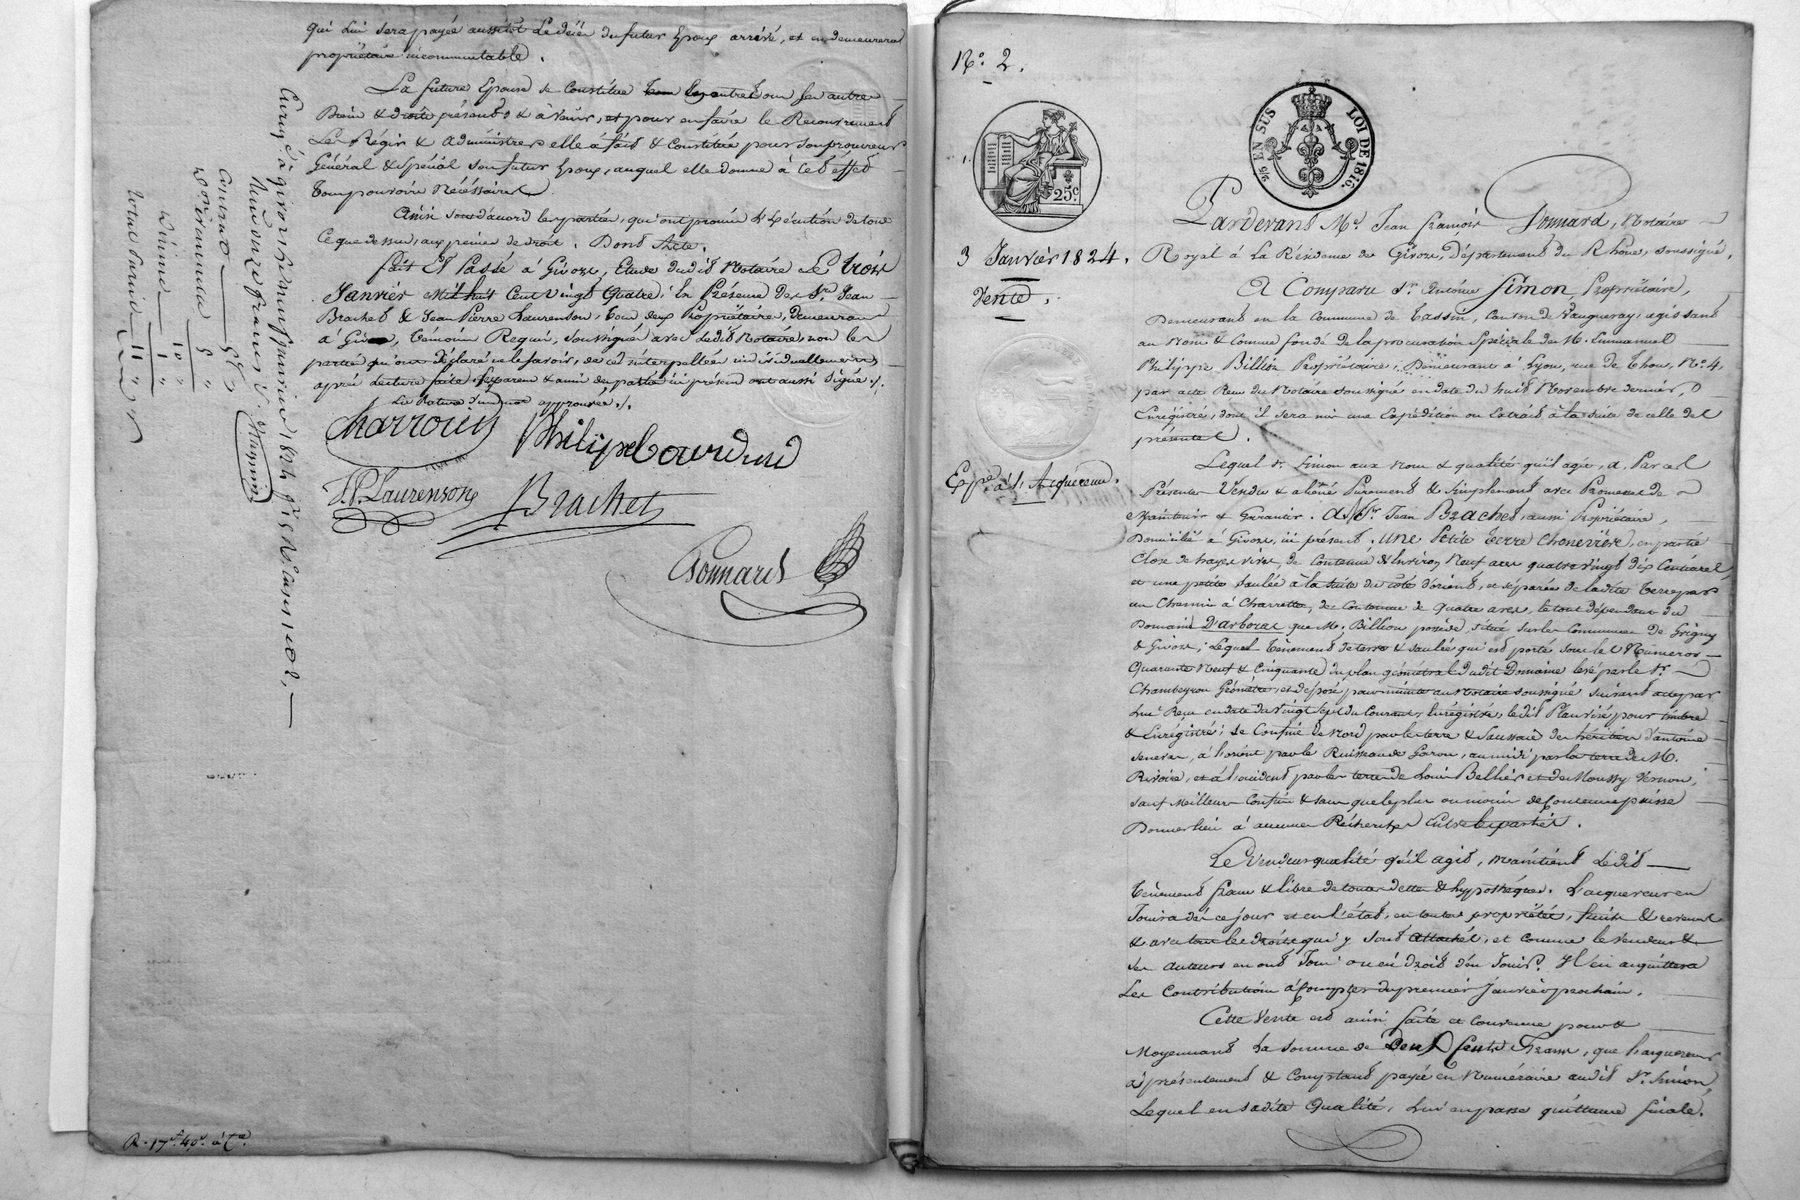 qui lui sera payée aussitôt le décès du futur Epoux arrivé, et en demeurera
propriétaire incommutable.
La future Epouse se Constitue en outre tous ses autres
Biens & droits présents & à venir, et pour en faire le Recouvrement
Les Régir & Administrer elle a fait & Constitué pour son procureur
Général & Spécial son futur Epoux, auquel elle donne à cet effet
tout pouvoir Nécéssaire
Ainsi sont d'accord les parties, qui ont promis l'éxécution de tout
Ce que dessus, aux peines de droit. Dont Acte.
fait Et Passé à Givors, Etude dudit Notaire Le trois
Janvier Mil huit Cent vingt Quatre; En Présence des Srs. Jean
Brachet & Jean Pierre Laurenson, tous deux Propriétaires, demeurant
à Givors, témoins Requis, soussignés avec Ledit Notaire, non les
parties qui ont déclaré ne le savoir, de ce interpellées individuellement
après Lecture faite. Les parens & amis des parties ici présens ont aussi signé ./.
La Rature d'un mot approuvée ./.
Charroin Philipe Courdund
J.P. Laurenson Brachet
Ponnard
Enreg. à Givors le neuf janvier 1824
Reçu onze francs
Contrat 5 f. "
Donation 5 "
Décime 1 "
Total onze 11 "
R. 17 f. 40 c. à
N.º 2.
25 EN SUS LOI DE 1816.
25 c.
3 Janvier 1824.
Vente.
Expé. à l'Acquereur.
Pardevant Me. Jean françois Ponnard, Notaire
Royal à La Résidence de Givors, Département du Rhône, soussigné.
A Comparu Sr. Antoine Simon Propriétaire,
Demeurant en la Commune de Tassin, Canton de Vaugneray; agissant
au Nom & Comme fondé de la procuration Spéciale de M. Emmanuel
Philippe Billion Propriétaire, Demeurant à Lyon, rue de Thou, No. 4,
par acte Reçu du Notaire soussigné en date du huit Novembre dernier,
Enrégistré, dont il sera mis une Expédition ou Extrait à la suite de celle des
présentes.
Lequel Sr. Simon aux nom & qualité qu'il agit, a, Par ces
Présentes Vendu & aliéné Purement & Simplement avec Promesse de
Maintenir & Garantir. Au Sr. Jean Brachet, aussi Propriétaire,
Domicilié à Givors, ici présent. Une Petite terre Chenevière, en partie
Close de hayes vives, de Contenue d'Environ Neuf ares quatre vingt dix Centiares,
et une petite saulée à la suite du côté d'orient, et séparée de ladite terre par
un Chemin à Charrette, de Contenue de quatre ares, le tout dépendant du
Domaine D'arboras que M. Billion possède, situé sur les Communes de Grigny
& Givors; Lequel tènement de terre & saulée qui est porté sous les Numéros
Quarante Neuf & Cinquante du plan géométral dudit Domaine levé par le Sr.
Chambeyron Géomètre, et déposé pour minute au Notaire soussigné suivant acte par
Lui Reçu en date du vingt sept du Courant, Enrégistré, ledit Plan visé pour timbre
& Enrégistré; se Confine de Nord par les terre & Saussaie des héritiers d'antoine
, à l'orient par le Ruisseau de Garon, au midi par la terre de M.
Rivoire, et à l'occident par les terres de Louis Bellier et de Moussy Vernon,
sauf Meilleurs Confins & sans que le plus ou moins de Contenue puisse
Donner lieu à aucunes Récherches Entre les parties.
Le Vendeur qualité qu'il agit, maintient Ledit
tènement franc & libre de toutes dettes & hypothéques. L'acquereur en
Jouira dès ce jour et en l'état, en toutes propriétés, fruits & revenus
& avec tous les droits qui y sont Attachés, et comme le vendeur &
ses auteurs en ont Joui ou eu droit d'en Jouir. Il en acquittera
Les Contributions à Compter du premier Janvier prochain.
Cette Vente est ainsi faite et Convenue pour &
Moyennant la somme de Deux Cents Francs, que l'acquereur
a présentement & Comptant payée en Numéraire audit Sr. Simon,
Lequel en sadite Qualité, lui en passe quittance finale.